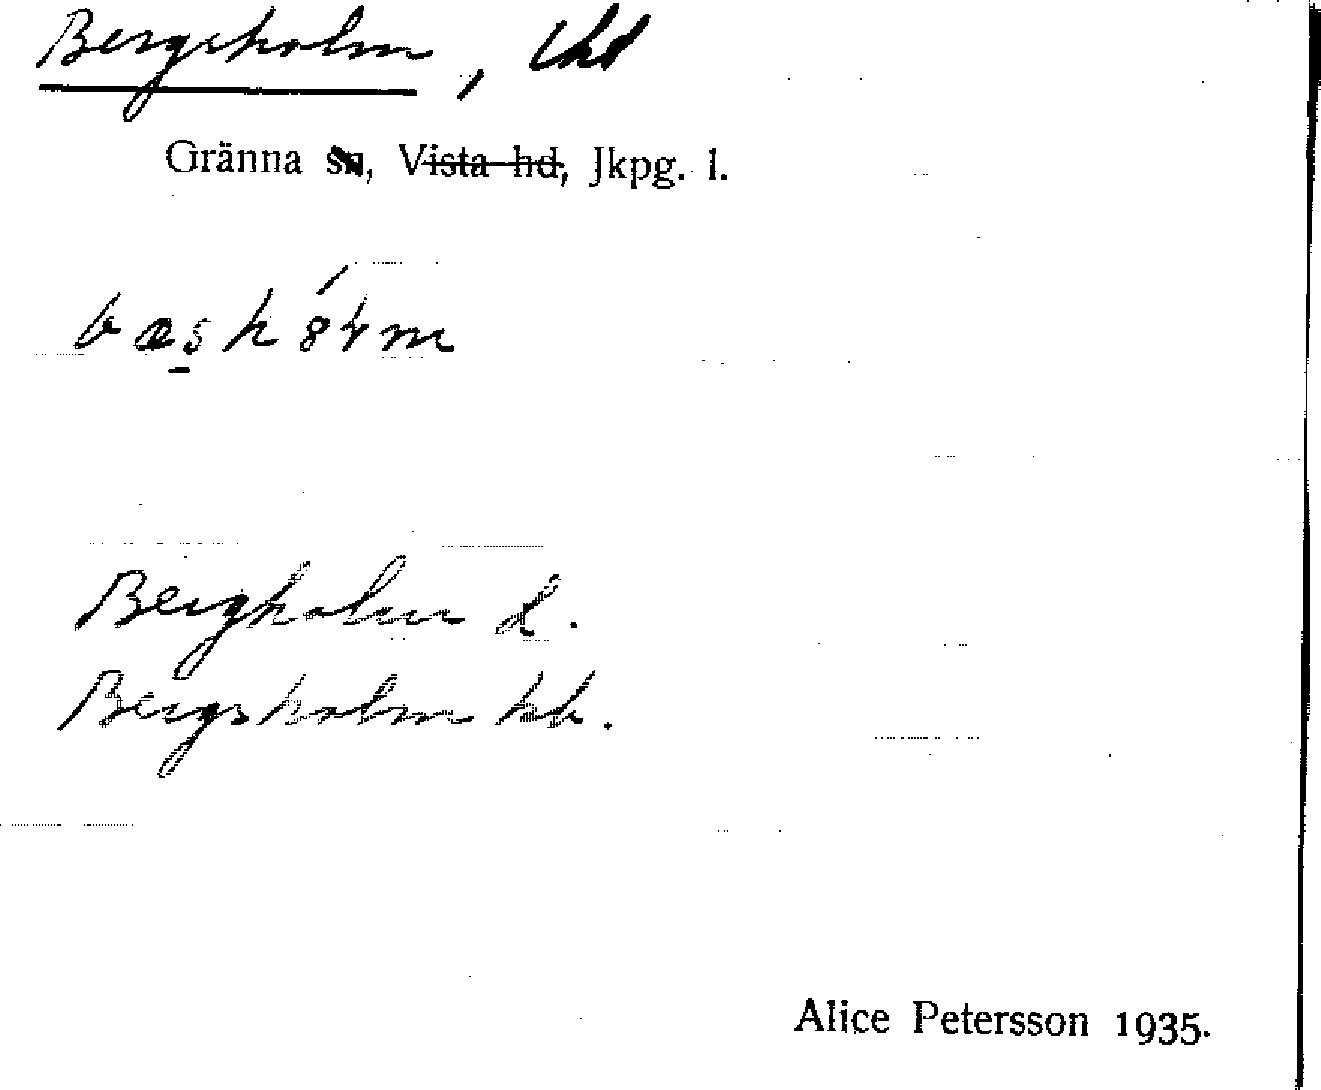 Bergsholm,
Gränna sn, Vista hd, Jkpg. l.
Bergholm
Bergsholm hb.
Alice Petersson 1935.